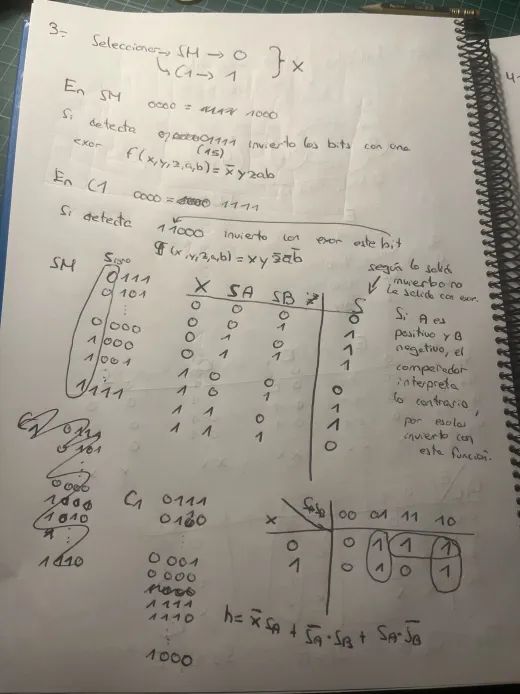 3.-
Seleccionar → SM → 0
C1 → 1 } X
En SM 0000 = 1000
Si detecta 01111 invierto los bits con una
(15)
exor f(x,y,z,a,b) = x̄ y z a b
En C1 0000 = 1111
Si detecta 11000 invierto con exor este bit
(x,y,z,a,b) = x y z̄ ā b̄
SM Signo
0111
0101
⋮
0000
1000
1001
⋮
1111
X SA SB S
0 0 0 0
0 0 1 1
0 1 0 1
0 1 1 1
1 0 0 0
1 0 1 1
1 1 0 1
1 1 1 0
según la salida
invierto o no
la salida con exor.
Si A es
positivo y B
negativo, el
comparador
interpreta
lo contrario,
por eso los
invierto con
esta función.
C1 0111
0101
0000
1000
1010
1110
C1 0111
0100
⋮
0001
0000
1111
1110
⋮
1000
X SASB 00 01 11 10
0 0 1 1 1
1 0 1 0 1
h = x̄ SA + S̄A · SB + SA · S̄B